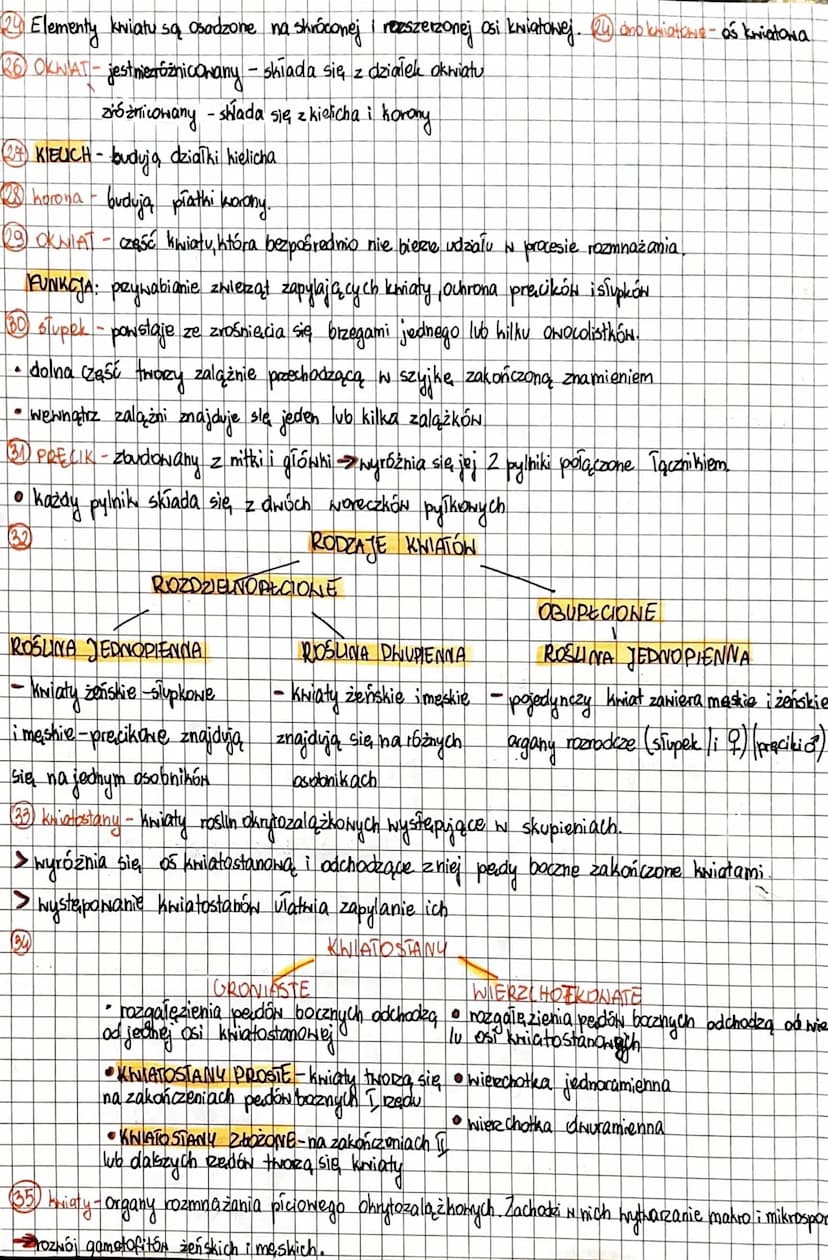 24 Elementy kwiatu są osadzone na skróconej i rozszerzonej osi kwiatowej. 24 dno kwiatowe - oś kwiatowa
26 OKWIAT - jest niezróżnicowany - składa się z działek okwiatu
zróżnicowany - składa się z kielicha i korony
27 KIELICH - budują działki kielicha
28 korona - budują płatki korony.
29 OKWIAT - część kwiatu, która bezpośrednio nie bierze udziału w procesie rozmnażania.
FUNKCJA: przywabianie zwierząt zapylających kwiaty, ochrona pręcików i słupków
30 słupek - powstaje ze zrośnięcia się brzegami jednego lub kilku owocolistków.
• dolna część tworzy zalążnie przechodzącą w szyjkę zakończoną znamieniem
• wewnątrz zalążni znajduje się jeden lub kilka zalążków
31 PRĘCIK - zbudowany z nitki i główki → wyróżnia się jej 2 pylniki połączone łącznikiem.
• każdy pylnik składa się z dwóch woreczków pyłkowych
32 RODZAJE KWIATÓW
ROZDZIELNOPŁCIOWE
OBUPŁCIOWE
ROŚLINA JEDNOPIENNA ROŚLINA DWUPIENNA ROŚLINA JEDNOPIENNA
- kwiaty żeńskie - słupkowe - kwiaty żeńskie i męskie - pojedynczy kwiat zawiera męskie i żeńskie
i męskie - pręcikowe znajdują znajdują się na różnych organy rozrodcze (słupek/i ♀) (pręciki ♂)
się na jednym osobników osobnikach
33 kwiatostany - kwiaty roślin okrytozalążkowych występujące w skupieniach.
> wyróżnia się oś kwiatostanową i odchodzące z niej pędy boczne zakończone kwiatami.
> występowanie kwiatostanów ułatwia zapylanie ich
34 KWIATOSTANY
GRONIASTE WIERZCHOŁKOWATE
• rozgałęzienia pędów bocznych odchodzą • rozgałęzienia pędów bocznych odchodzą od wie
od jednej osi kwiatostanowej lu osi kwiatostanowych
• KWIATOSTANY PROSTE - kwiaty tworzą się • wierzchotka jednoramienna
na zakończeniach pędów bocznych I rzędu
• wierzchotka dwuramienna
• KWIATOSTANY ZŁOŻONE - na zakończeniach II
lub dalszych rzędów tworzą się kwiaty
35 kwiaty - organy rozmnażania płciowego okrytozalążkowych. Zachodzi w nich wytwarzanie makro i mikrospor
→ rozwój gametofitów żeńskich i męskich.